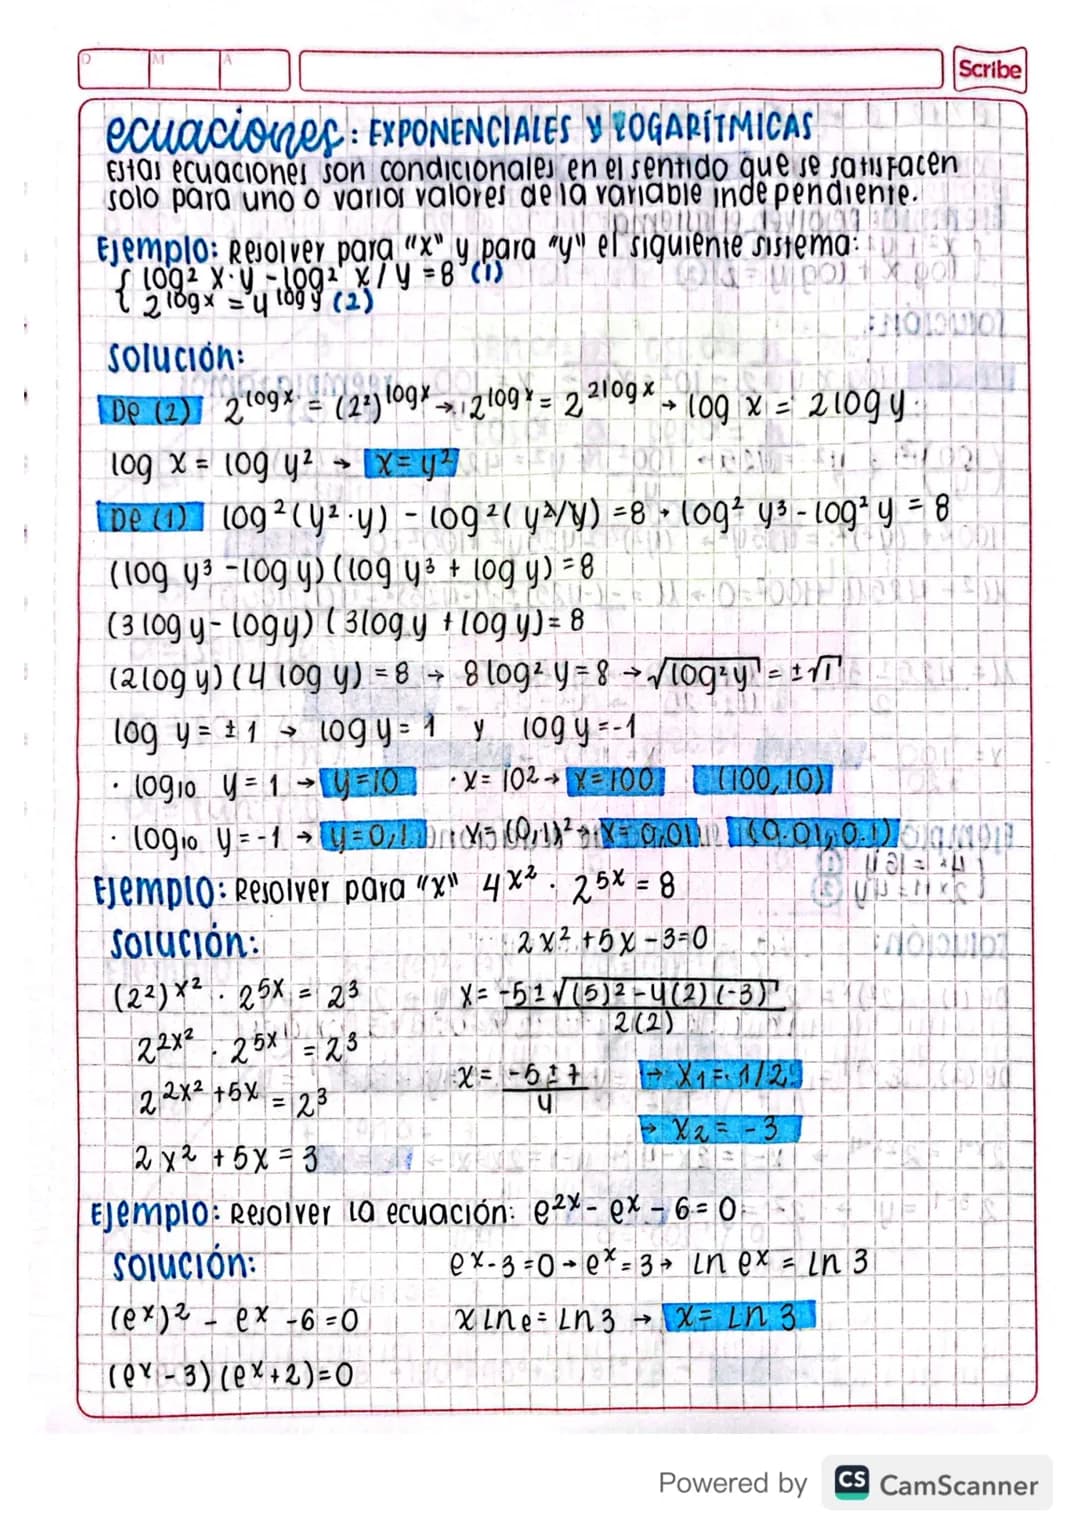 D M A
Scribe
ecuaciones: EXPONENCIALES Y LOGARÍTMICAS
Estas ecuaciones son condicionales en el sentido que se satisfacen
solo para uno o varios valores de la variable independiente.
Ejemplo: Resolver para "x" y para "y" el siguiente sistema:
{ log² x·y - log² x/y = 8 (1)
2^log x = 4^log y (2)
Solución:
De (2) 2^log x = (2²)^log x → 2^log x = 2^2log x → log x = 2log y
log x = log y² → x = y²
De (1) log²(y²·y) - log²(y²/y) = 8 → log² y³ - log² y = 8
(log y³ - log y)(log y³ + log y) = 8
(3log y - log y)(3log y + log y) = 8
(2log y)(4 log y) = 8 → 8 log² y = 8 → √log² y = ±√1
log y = ±1 → log y = 1 y log y = -1
· log₁₀ y = 1 → y = 10 · x = 10² → x = 100 (100, 10)
· log₁₀ y = -1 → y = 0,1 x = (0,1)² → x = 0,01 (0.01, 0.1)
Ejemplo: Resolver para "x" 4^x² · 2^5x = 8
Solución:
(2²)^x² · 2^5x = 2³
2^2x² · 2^5x = 2³
2^2x²+5x = 2³
2x² + 5x = 3
2x² + 5x - 3 = 0
x = -5 ± √(5)² - 4(2)(-3) / 2(2)
x = -5 ± 7 / 4 → x₁ = 1/2
→ x₂ = -3
Ejemplo: Resolver la ecuación: e^2x - e^x - 6 = 0
Solución:
(e^x)² - e^x - 6 = 0
(e^x - 3)(e^x + 2) = 0
e^x - 3 = 0 → e^x = 3 → Ln e^x = Ln 3
x Ln e = Ln 3 → x = Ln 3
Powered by CS CamScanner